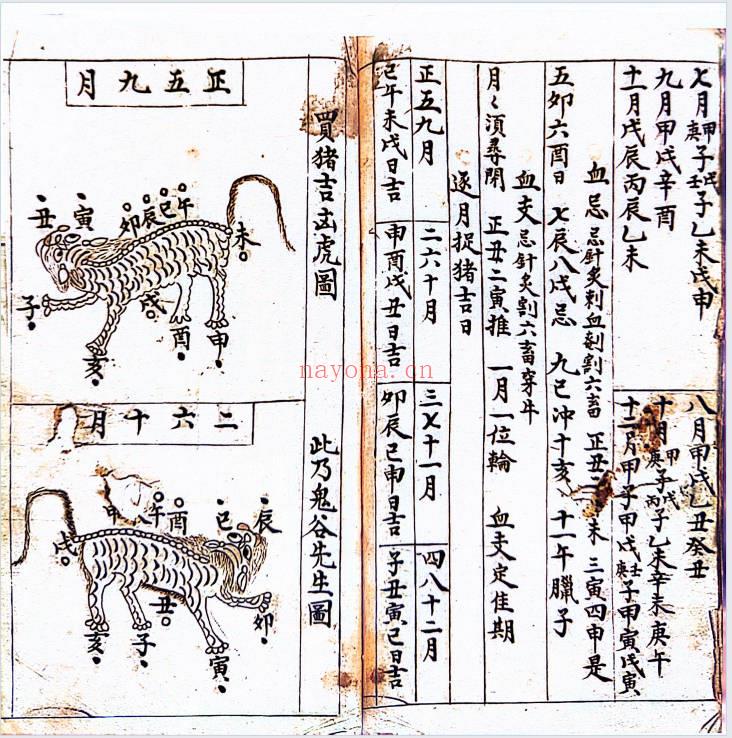 七月甲庚子戊壬子乙未戊申
九月甲戌辛酉
十一月戊辰丙辰乙未
八月甲戌乙丑癸丑
十月甲庚子戊丙子乙未辛未庚午
十二月甲子甲戌壬庚子甲寅戊寅
血忌忌針灸刺血割六畜 正丑二未 三寅四申是
五卯六酉日 七辰八戌忌 九巳冲十亥 十一午臘子
血支忌針灸割六畜穿牛
月〻須尋閉 正丑二寅推 一月一位輪 血支定佳期
逐月捉猪吉日
正五九月 二六十月 三七十一月 四八十二月
巳午未戌日吉 申酉戌丑日吉 卯辰巳申日吉 子丑寅巳日吉
買猪吉凶虎圖
此乃鬼谷先生圖
正五九月
丑 寅 卯 辰 巳 午 未
子 亥 戌 酉 申
二六十月
戌 申 午 酉 巳 辰
亥 子 丑 寅 卯
nayona.cn